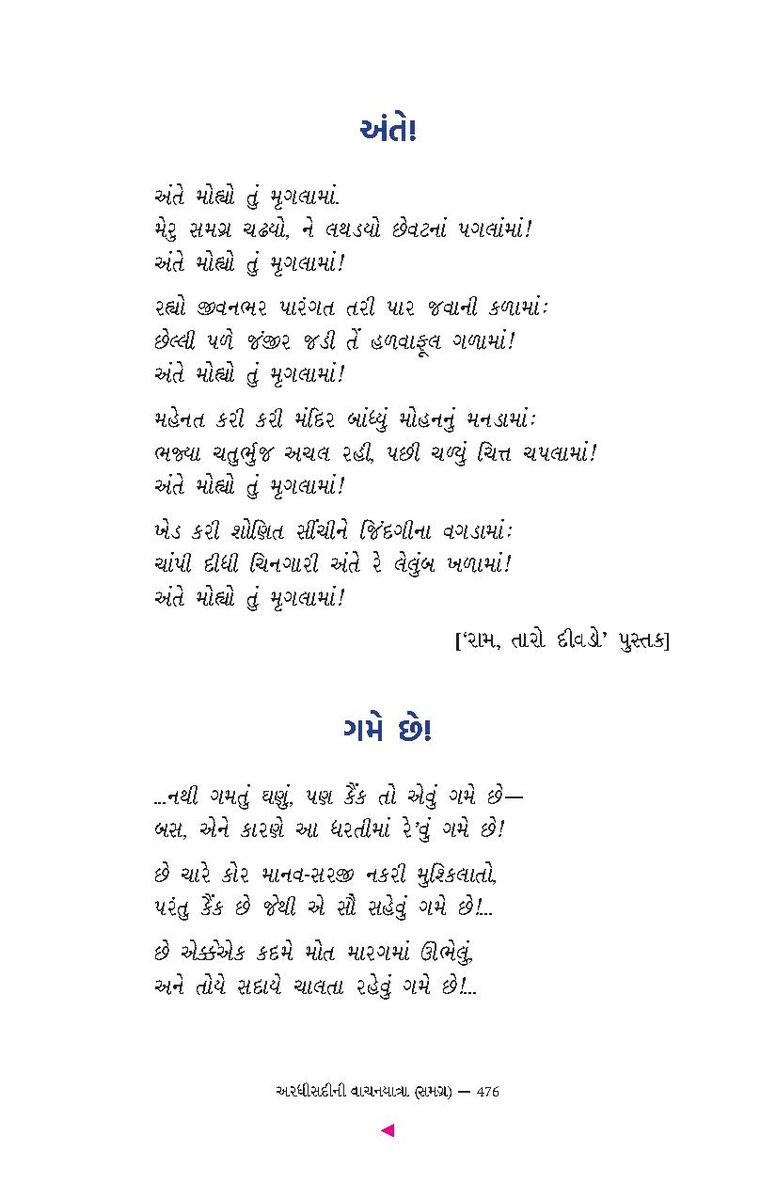 અંતે!
અંતે મોહ્યો તું મૃગલામાં.
મેરુ સમગ્ર ચઢયો, ને લથડયો છેવટનાં પગલાંમાં!
અંતે મોહ્યો તું મૃગલામાં!
રહ્યો જીવનભર પારંગત તરી પાર જવાની કળામાંઃ
છેલ્લી પળે જંજીર જડી તેં હળવાફૂલ ગળામાં!
અંતે મોહ્યો તું મૃગલામાં!
મહેનત કરી કરી મંદિર બાંધ્યું મોહનનું મનડામાંઃ
ભજ્યા ચતુર્ભુજ અચલ રહી, પછી ચળ્યું ચિત્ત ચપલામાં!
અંતે મોહ્યો તું મૃગલામાં!
ખેડ કરી શોણિત સીંચીને જિંદગીના વગડામાંઃ
ચાંપી દીધી ચિનગારી અંતે રે લેલુંબ ખળામાં!
અંતે મોહ્યો તું મૃગલામાં!
[‘રામ, તારો દીવડો’ પુસ્તક]
ગમે છે!
...નથી ગમતું ઘણું, પણ કૈંક તો એવું ગમે છે—
બસ, એને કારણે આ ધરતીમાં રે’વું ગમે છે!
છે ચારે કોર માનવ-સરજી નકરી મુશ્કિલાતો,
પરંતુ કૈંક છે જેથી એ સૌ સહેવું ગમે છે!...
છે એક્કેએક કદમે મોત મારગમાં ઊભેલું,
અને તોયે સદાયે ચાલતા રહેવું ગમે છે!...
અરધીસદીની વાચનયાત્રા (સમગ્ર) — 476